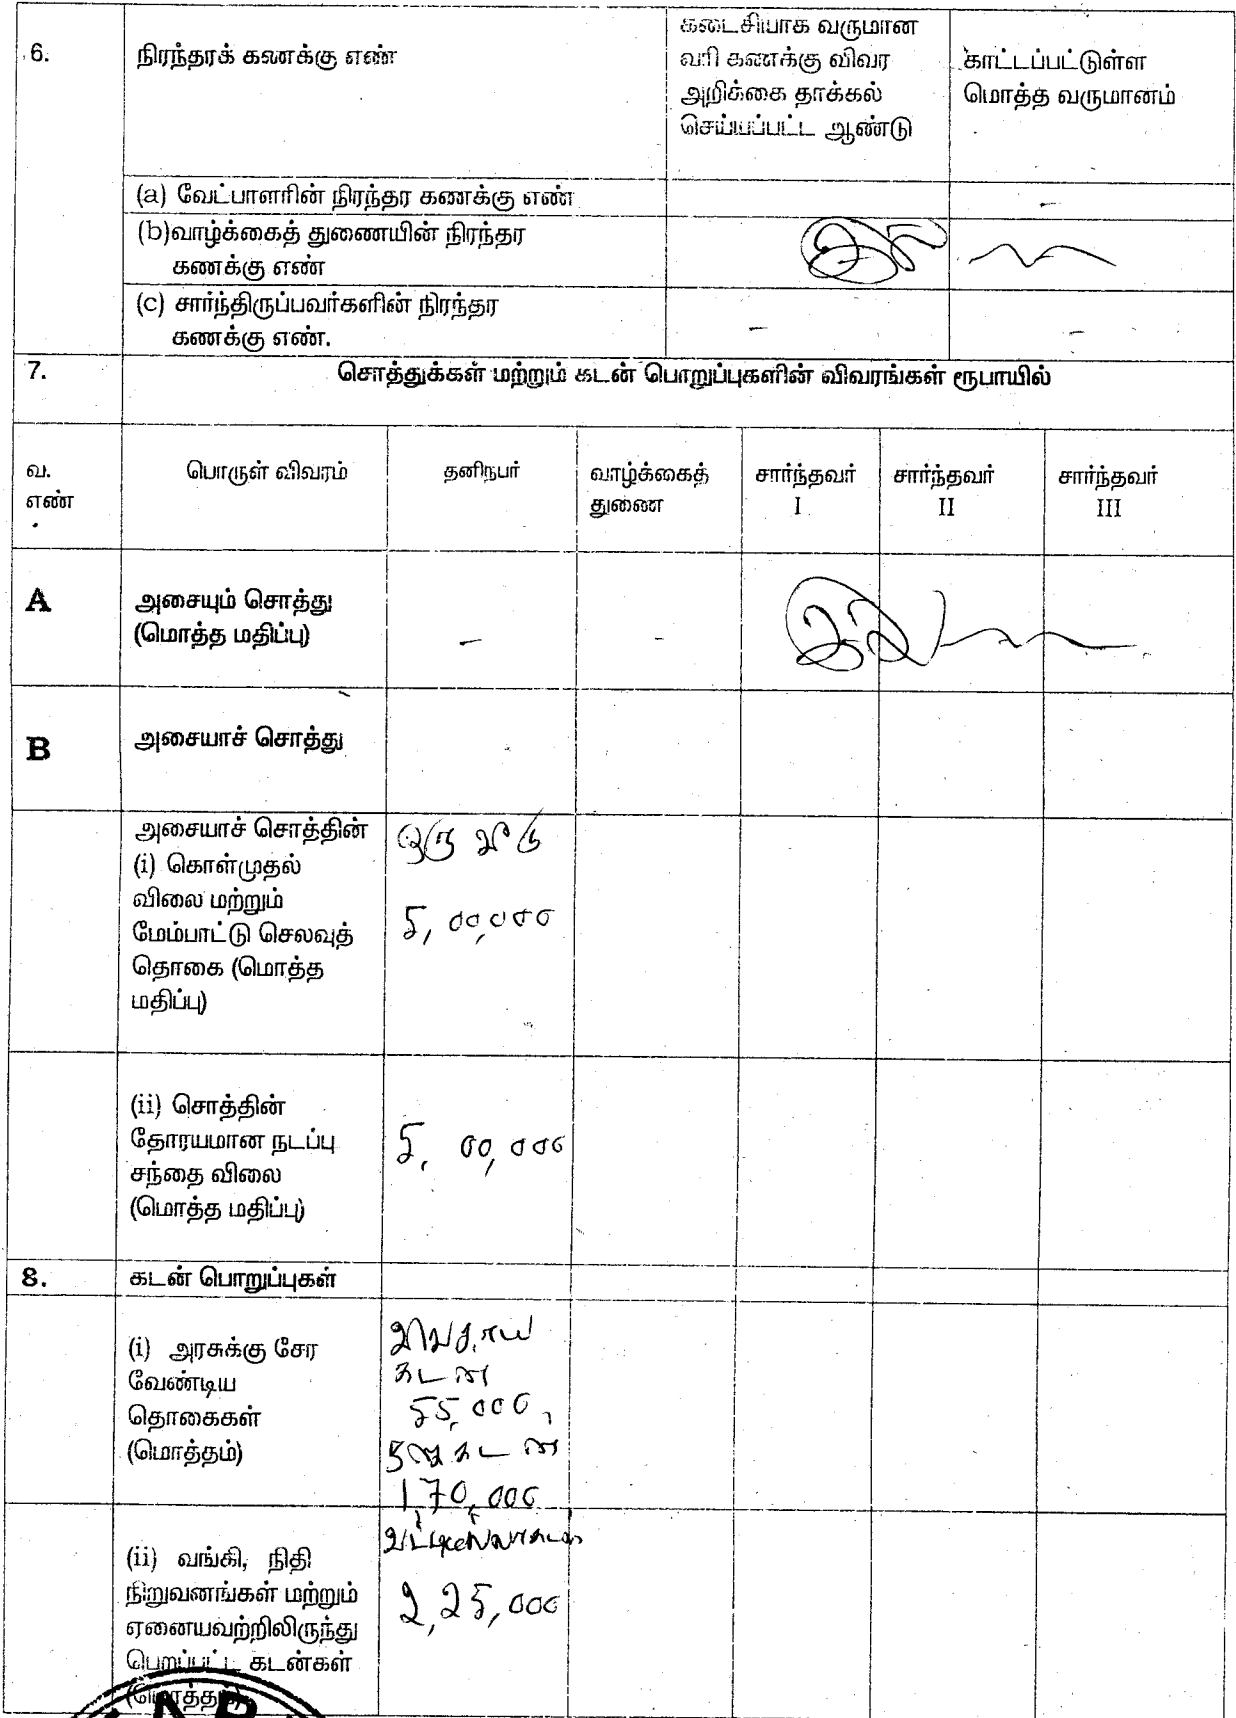 6.
நிரந்தரக் கணக்கு எண்
கடைசியாக வருமான
வரி கணக்கு விவர
அறிக்கை தாக்கல்
செய்யப்பட்ட ஆண்டு
காட்டப்பட்டுள்ள
மொத்த வருமானம்
(a) வேட்பாளரின் நிரந்தர கணக்கு எண்
-
(b)வாழ்க்கைத் துணையின் நிரந்தர
கணக்கு எண்
(c) சார்ந்திருப்பவர்களின் நிரந்தர
கணக்கு எண்.
- -
7.
சொத்துக்கள் மற்றும் கடன் பொறுப்புகளின் விவரங்கள் ரூபாயில்
வ.
எண்
பொருள் விவரம்
தனிநபர்
வாழ்க்கைத்
துணை
சார்ந்தவர்
I
சார்ந்தவர்
II
சார்ந்தவர்
III
A
அசையும் சொத்து
(மொத்த மதிப்பு)
- -
B
அசையாச் சொத்து
அசையாச் சொத்தின்
(i) கொள்முதல்
விலை மற்றும்
மேம்பாட்டு செலவுத்
தொகை (மொத்த
மதிப்பு)
ஒரு வீடு
5,00,000
(ii) சொத்தின்
தோரயமான நடப்பு
சந்தை விலை
(மொத்த மதிப்பு)
5,00,000
8.
கடன் பொறுப்புகள்
(i) அரசுக்கு சேர
வேண்டிய
தொகைகள்
(மொத்தம்)
விவசாய
கடன்
55,000,
நகை கடன்
1,70,000
(ii) வங்கி, நிதி
நிறுவனங்கள் மற்றும்
ஏனையவற்றிலிருந்து
பெறப்பட்ட கடன்கள்
(மொத்தம்)
2,25,000